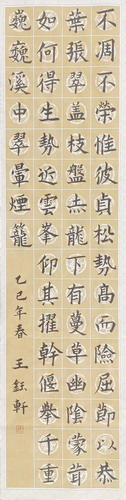 不凋不榮惟彼貞松勢高而險屈節以恭
葉張翠蓋枝盤赤龍下有蔓草幽陰蒙茸
如何得生勢近雲峯仰其擢幹偃舉千重
巍巍溪中翠暈煙籠
乙巳年春 王鈺軒